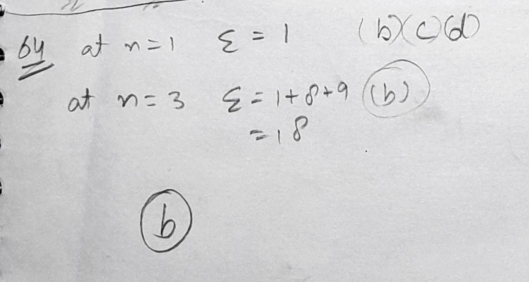 64 at n=1 Σ = 1 (b)(c)(d)
at n=3 Σ = 1+8+9 (b)
= 18
b